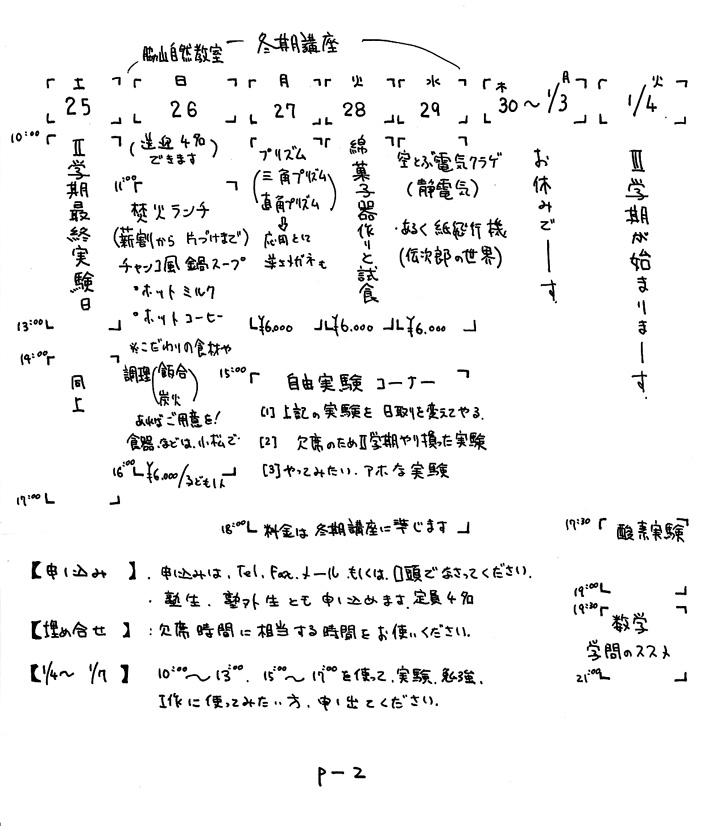 脇山自然教室 冬期講座
土 日 月 火 水 木 月 火
25 26 27 28 29 30〜1/3 1/4
10:00
II学期最終実験日
13:00
14:00
同上
17:00
(送迎4名
できます)
11:00
焚火ランチ
(薪割から片づけまで)
チャンコ風鍋スープ
・ホットミルク
・ホットコーヒー
※こだわりの食材や
調理(飯合
炭火)
あればご用意を!
食器などは、小松で
16:00 ¥6.000/子ども1人
プリズム
(三角プリズム
直角プリズム)
⇩
応用として
逆さメガネも
¥6.000
綿菓子器作りと試食
¥6.000
空とぶ電気クラゲ
(静電気)
・あるく紙飛行機
(伝次郎の世界)
¥6.000
お休みでーす
III学期が始まりまーす
15:00
自由実験コーナー
[1] 上記の実験を日取りを変えてやる.
[2] 欠席のためII学期やり損った実験
[3] やってみたい、アホな実験
18:00 料金は冬期講座に準じます
17:30 酸素実験
19:00
19:30
数学
学問のススメ
21:00
【申し込み】. 申し込みは、Tel, Fax, メールもしくは、口頭でなさってください.
・塾生、塾外生とも申し込めます. 定員4名
【埋め合せ】: 欠席時間に相当する時間をお使いください.
【1/4〜1/7】 10:00〜13:00, 15:00〜17:00を使って、実験、勉強、
工作に使ってみたい方、申し出てください.
P-2